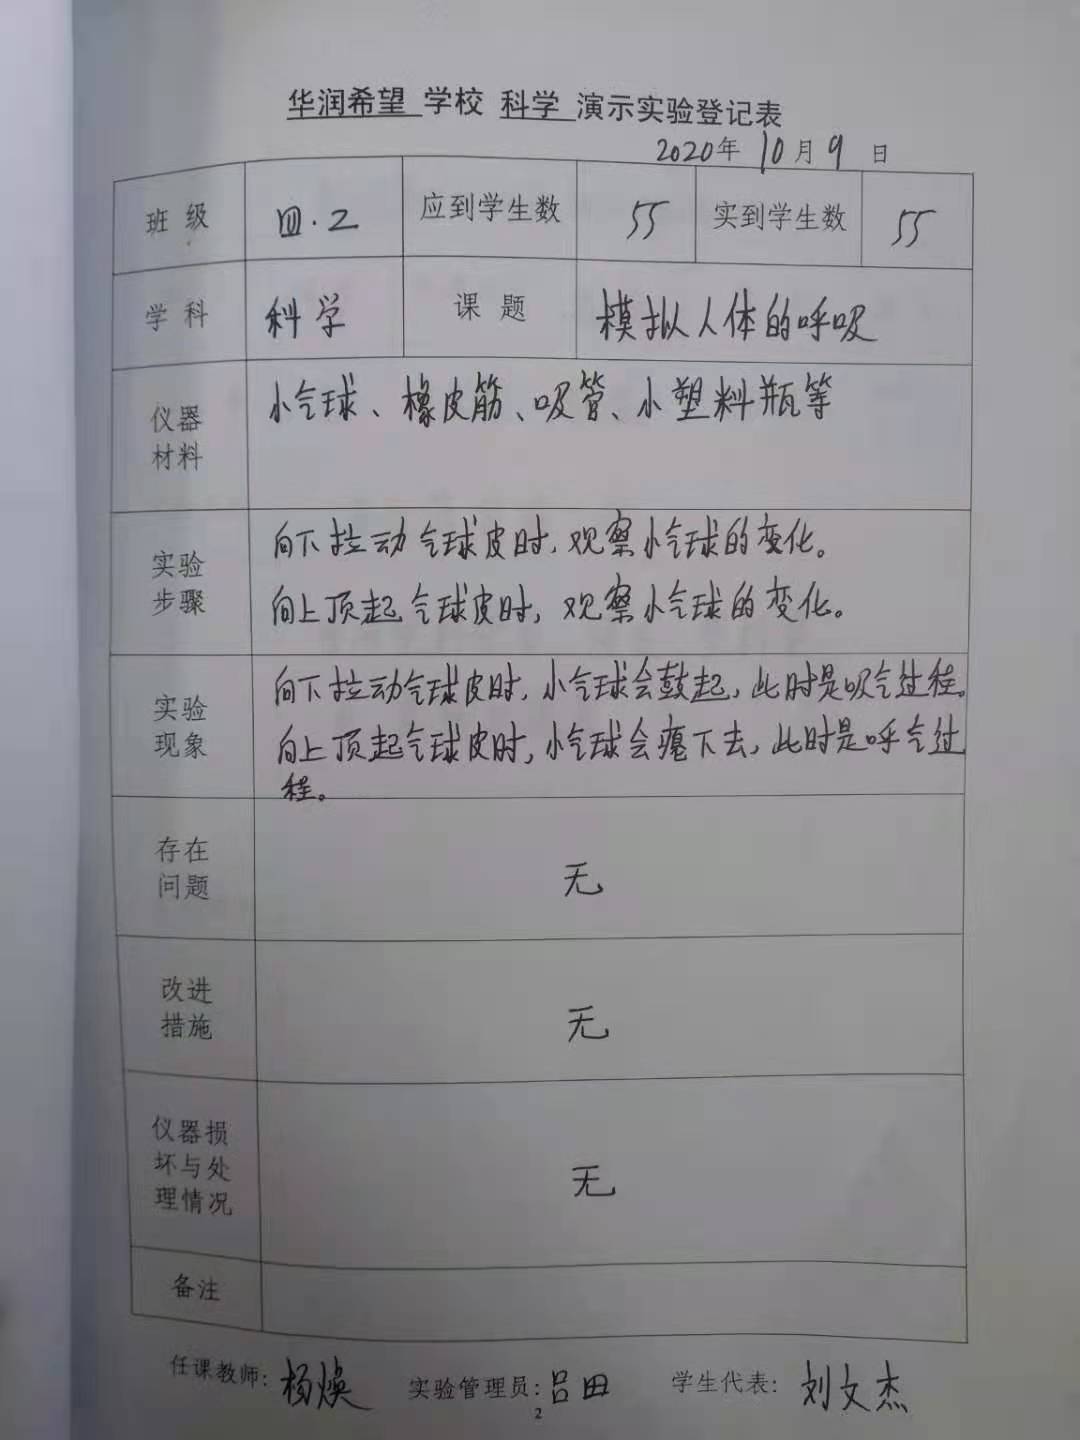 华润希望 学校 科学 演示实验登记表
2020年 10月 9 日
班 级 四.2 应到学生数 55 实到学生数 55
学 科 科学 课 题 模拟人体的呼吸
仪器
材料
小气球、橡皮筋、吸管、小塑料瓶等
实验
步骤
向下拉动气球皮时,观察小气球的变化。
向上顶起气球皮时,观察小气球的变化。
实验
现象
向下拉动气球皮时,小气球会鼓起,此时是吸气过程。
向上顶起气球皮时,小气球会瘪下去,此时是呼气过
程。
存在
问题
无
改进
措施
无
仪器损
坏与处
理情况
无
备注
任课教师:杨焕 实验管理员:吕田 学生代表:刘文杰
2